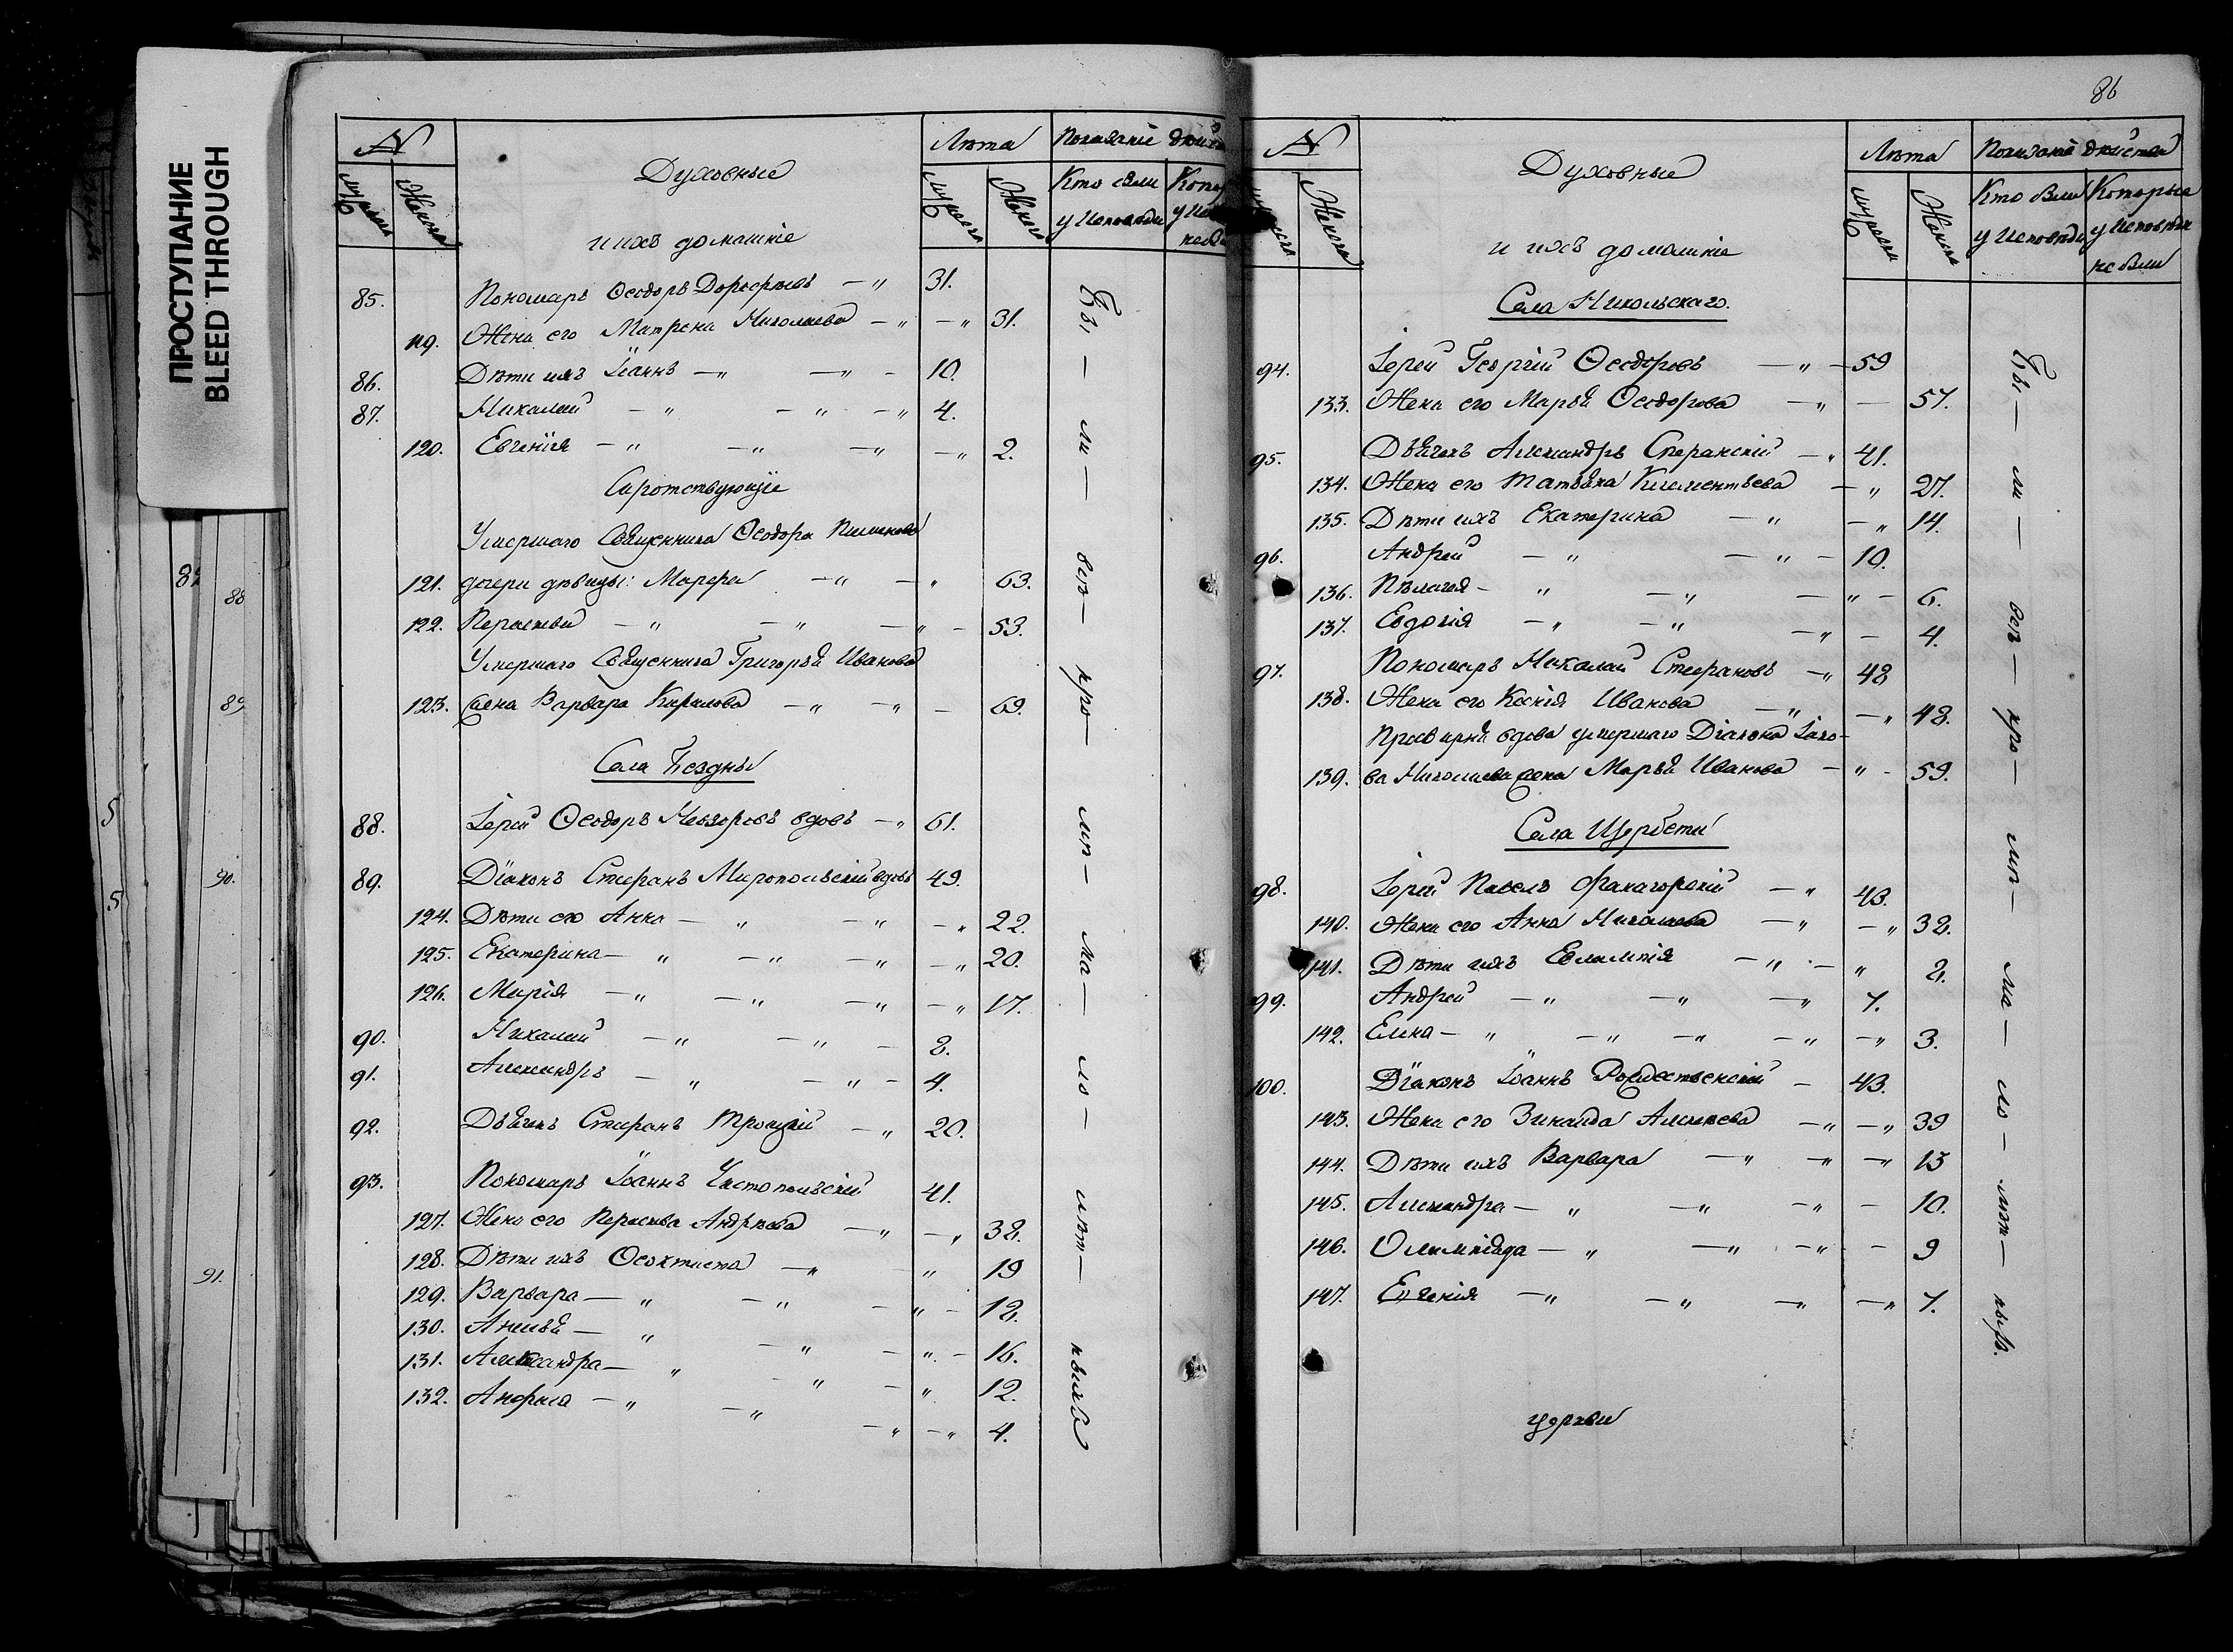 ПРОСТУПАНИЕ
BLEED THROUGH
88
89
90.
91.
№
Духовные
и ихъ домашніе
Лѣта
Показаніе
Мужеска
Женска
Мужеска
Женска
Кто были
у Исповѣди
85. Пономарь Ѳеодоръ Дороѳѣевъ — „ 31.
119. Жена его Матрена Николаева — „ — „ 31.
86. Дѣти ихъ Іоаннъ — „ — „ — 10.
87. Николай — „ — „ — „ 4.
120. Евгенія — „ — „ — „ — „ 2.
Сиротствующіе
Умершаго Священника Ѳеодора
121. дочери дѣвицы: Марѳа — „ — „ 63.
122. Параскева — „ — „ — „ — 53.
Умершаго Священника Григорья Иванова
123. жена Варвара Кирилова — „ — „ — 69.
Села Бездны
88. Іерей Ѳеодоръ Невзоровъ вдовъ — „ 61.
89. Діаконъ Стефанъ Миропольскій вдовъ 49.
124. Дѣти его Анна — „ — „ — „ 22.
125. Екатерина — „ — „ — „ — „ 20.
126. Марія — „ — „ — „ — „ 17.
90. Николай — „ — „ — 8.
91. Александръ — „ — „ — 4.
92. Дьячекъ Стефанъ Троицкій — „ 20.
93. Пономарь Іоаннъ Чистопольскій 41.
127. Жена его Параскева Андрѣева — „ — „ 38.
128. Дѣти ихъ Ѳеоктиста — „ „ 19
129. Варвара — „ — „ — „ — 12.
130. Анисья — „ — „ — „ — 16.
131. Александра — „ — „ — „ 12.
132. Анфиса — „ — „ — „ — „ 4.
Бы — ли — всѣ — кро — мѣ — ма — ло — лѣт — ныхъ
86
№
Духовные
и ихъ домашніе
Лѣта
Показаніе действа
Мужеска
Женска
Мужеска
Женска
Кто были
у Исповѣди
Которые
у Исповѣди
не были
Села Никольскаго.
94. Іерей Георгій Ѳеодоровъ — „ — 59
133. Жена его Марья Ѳеодорова — „ — 57.
95. Дьячекъ Александръ Сперанскій — „ 41.
134. Жена его Татьяна Климентьева — „ 27.
135. Дѣти ихъ Екатерина — „ — „ 14.
96. Андрей — „ — „ — 10.
136. Пелагея — „ — „ — „ — 6.
137. Евдокія — „ — „ — „ — 4.
97. Пономарь Николай Стефановъ — „ 48
138. Жена его Ксенія Иванова — „ — „ 48.
Просвирня вдова умершаго Діакона Іако-
139. ва Николаева жена Марья Иванова — „ — 59.
Села Щербети
98. Іерей Павелъ Фанагорскій — „ 43.
140. Жена его Анна Николаева — „ — „ 38.
141. Дѣти ихъ Евлампія — „ — „ 8.
99. Андрей — „ — „ — „ 7.
142. Елена — „ — „ — „ — „ — „ 3.
100. Діаконъ Іоаннъ Рождественскій — 43.
143. Жена его Зинаида Алексеева — „ — „ 39
144. Дѣти ихъ Варвара — „ — „ — „ 13
145. Александра — „ — „ — „ — 10.
146. Олимпіада — „ — „ — „ — 9
147. Евгенія — „ — „ — „ — „ 7.
Бы — ли — всѣ — кро — мѣ — ма — ло — лѣт — ныхъ.
церкви